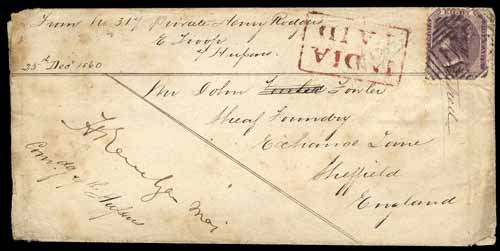 From No 317 Private Henry Hodges
E Troop
7 Hussars
25th Dec 1860
INDIA
PAID
Mr John Fowler
Sheaf Foundry
Exchange Lane
Sheffield
England
Comdg 7th Hussars